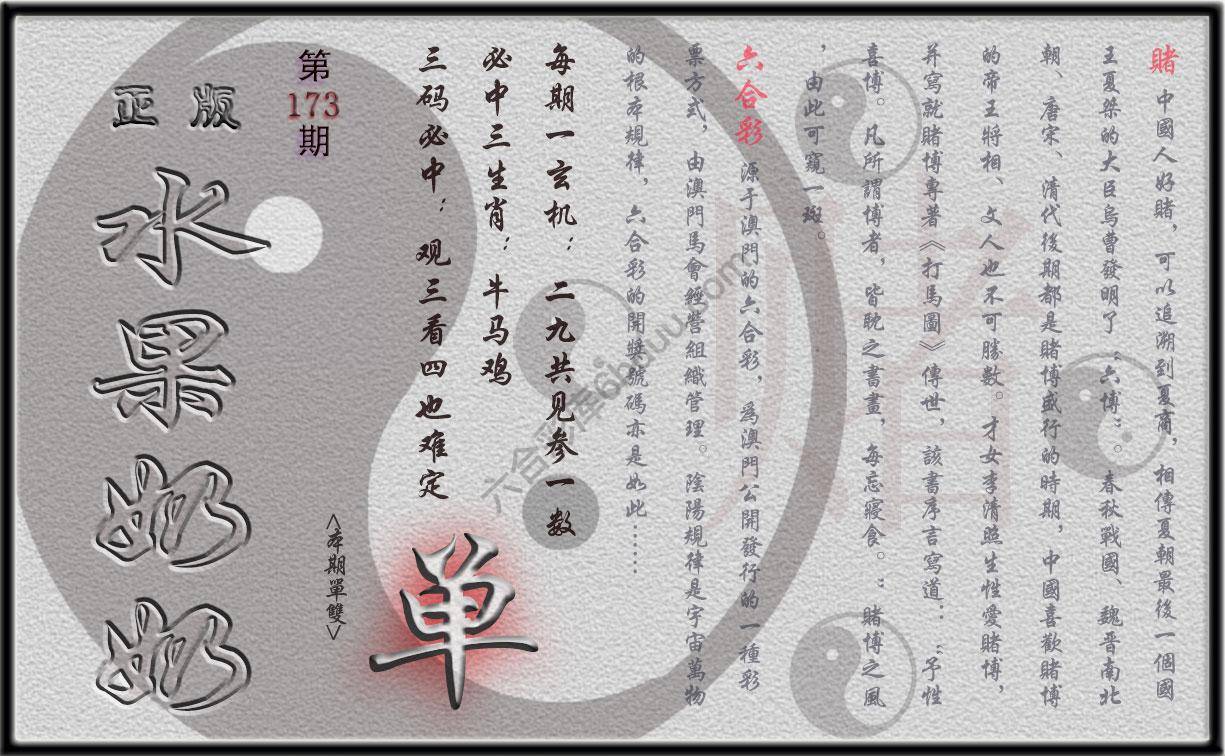 賭 中國人好賭，可以追溯到夏商，相傳夏朝最後一個國
王夏桀的大臣烏曹發明了“六博”。春秋戰國、魏晋南北
朝、唐宋、清代後期都是賭博盛行的時期，中國喜歡賭博
的帝王將相、文人也不可勝數。才女李清照生性愛賭博，
并寫就賭博專著《打馬圖》傳世，該書序言寫道：“予性
喜博。凡所謂博者，皆耽之晝畫，每忘寢食。”賭博之風
，由此可窺一斑。
六合彩 源于澳門的六合彩，為澳門公開發行的一種彩
票方式，由澳門馬會經營組織管理。陰陽規律是宇宙萬物
的根本規律，六合彩的開獎號碼亦是如此……
每期一玄机：二九共见参一数
必中三生肖：牛马鸡
三码必中：观三看四也难定
单
<本期單雙>
第
173
期
正版
水果奶奶
六合彩库6huuu.com